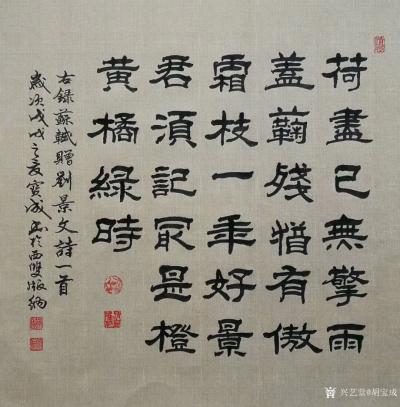 荷盡已無擎雨
蓋蘜殘猶有傲
霜枝一年好景
君須記最是橙
黄橘緑時
右録蘇軾贈劉景文詩一首
歲次戊戌之夏寶成書於西雙版納
兴艺堂@胡宝成